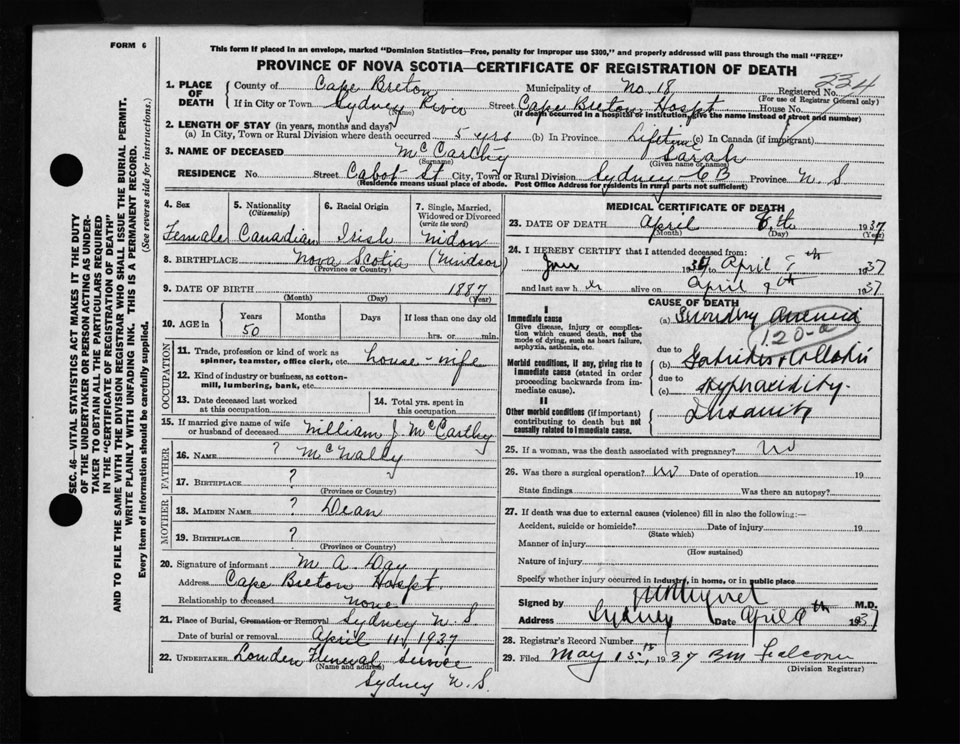 FORM 6
This form if placed in an envelope, marked "Dominion Statistics—Free, penalty for improper use $300," and properly addressed will pass through the mail "FREE"
PROVINCE OF NOVA SCOTIA—CERTIFICATE OF REGISTRATION OF DEATH
234
1. PLACE OF DEATH
County of Cape Breton Municipality of No. 18 Registered No.
(For use of Registrar General only)
If in City or Town Sydney River Street Cape Breton Hospt House No.
(Name) (If death occurred in a hospital or institution, give the name instead of street and number)
2. LENGTH OF STAY (in years, months and days)
(a) In City, Town or Rural Division where death occurred 5 yrs (b) In Province Lifetime (c) In Canada (if immigrant)
3. NAME OF DECEASED McCarthy Sarah
(Surname) (Given name or names)
RESIDENCE No. Street Cabot St City, Town or Rural Division Sydney C B Province N. S
(Residence means usual place of abode. Post Office Address for residents in rural parts not sufficient)
4. Sex 5. Nationality (Citizenship) 6. Racial Origin 7. Single, Married, Widowed or Divorced (write the word)
Female Canadian Irish Widow
8. BIRTHPLACE Nova Scotia (Windsor)
(Province or Country)
9. DATE OF BIRTH 1887
(Month) (Day) (Year)
10. AGE IN Years Months Days If less than one day old
50 hrs. or min.
OCCUPATION
11. Trade, profession or kind of work as spinner, teamster, office clerk, etc. house-wife
12. Kind of industry or business, as cotton-mill, lumbering, bank, etc.
13. Date deceased last worked at this occupation
14. Total yrs. spent in this occupation
15. If married give name of wife or husband of deceased William J. McCarthy
FATHER
16. NAME ? McNally
17. BIRTHPLACE ?
(Province or Country)
MOTHER
18. MAIDEN NAME ? Dean
19. BIRTHPLACE ?
(Province or Country)
20. Signature of informant M A Day
Address Cape Breton Hospt.
Relationship to deceased none
21. Place of Burial, Cremation or Removal Sydney N. S
Date of burial or removal April 11, 1937
22. UNDERTAKER Louden Funeral Service
(Name and address)
Sydney N. S.
MEDICAL CERTIFICATE OF DEATH
23. DATE OF DEATH April 1937
(Month) (Day) (Year)
24. I HEREBY CERTIFY that I attended deceased from
to April 1937
and last saw her alive on April 1937
CAUSE OF DEATH
Immediate cause
Give disease, injury or complication which caused death, not the mode of dying, such as heart failure, asphyxia, asthenia, etc.
(a) Secondary Anemia
120-a
Morbid conditions, if any, giving rise to immediate cause (stated in order proceeding backwards from immediate cause).
due to
(b)
due to
(c)
II
Other morbid conditions (if important) contributing to death but not causally related to immediate cause.
Insanity
25. If a woman, was the death associated with pregnancy? no
26. Was there a surgical operation? no Date of operation 19
State findings Was there an autopsy?
27. If death was due to external causes (violence) fill in also the following:—
Accident, suicide or homicide? Date of injury 19
(State which)
Manner of injury
(How sustained)
Nature of injury
Specify whether injury occurred in industry, in home, or in public place
Signed by M.D.
Address Sydney Date April 1937
28. Registrar's Record Number
29. Filed May 15th, 1937 BM Falconer
(Division Registrar)
SEC. 46—VITAL STATISTICS ACT MAKES IT THE DUTY
OF THE UNDERTAKER OR PERSON ACTING AS UNDER-
TAKER TO OBTAIN ALL THE PARTICULARS REQUIRED
IN THE "CERTIFICATE OF REGISTRATION OF DEATH"
AND TO FILE THE SAME WITH THE DIVISION REGISTRAR WHO SHALL ISSUE THE BURIAL PERMIT.
WRITE PLAINLY WITH UNFADING INK. THIS IS A PERMANENT RECORD.
Every item of information should be carefully supplied. (See reverse side for instructions.)